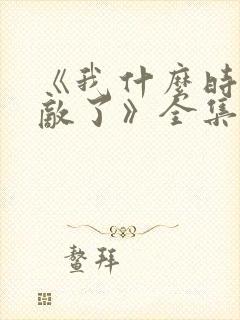 《我什麼時
敵了》全集
鰲拜